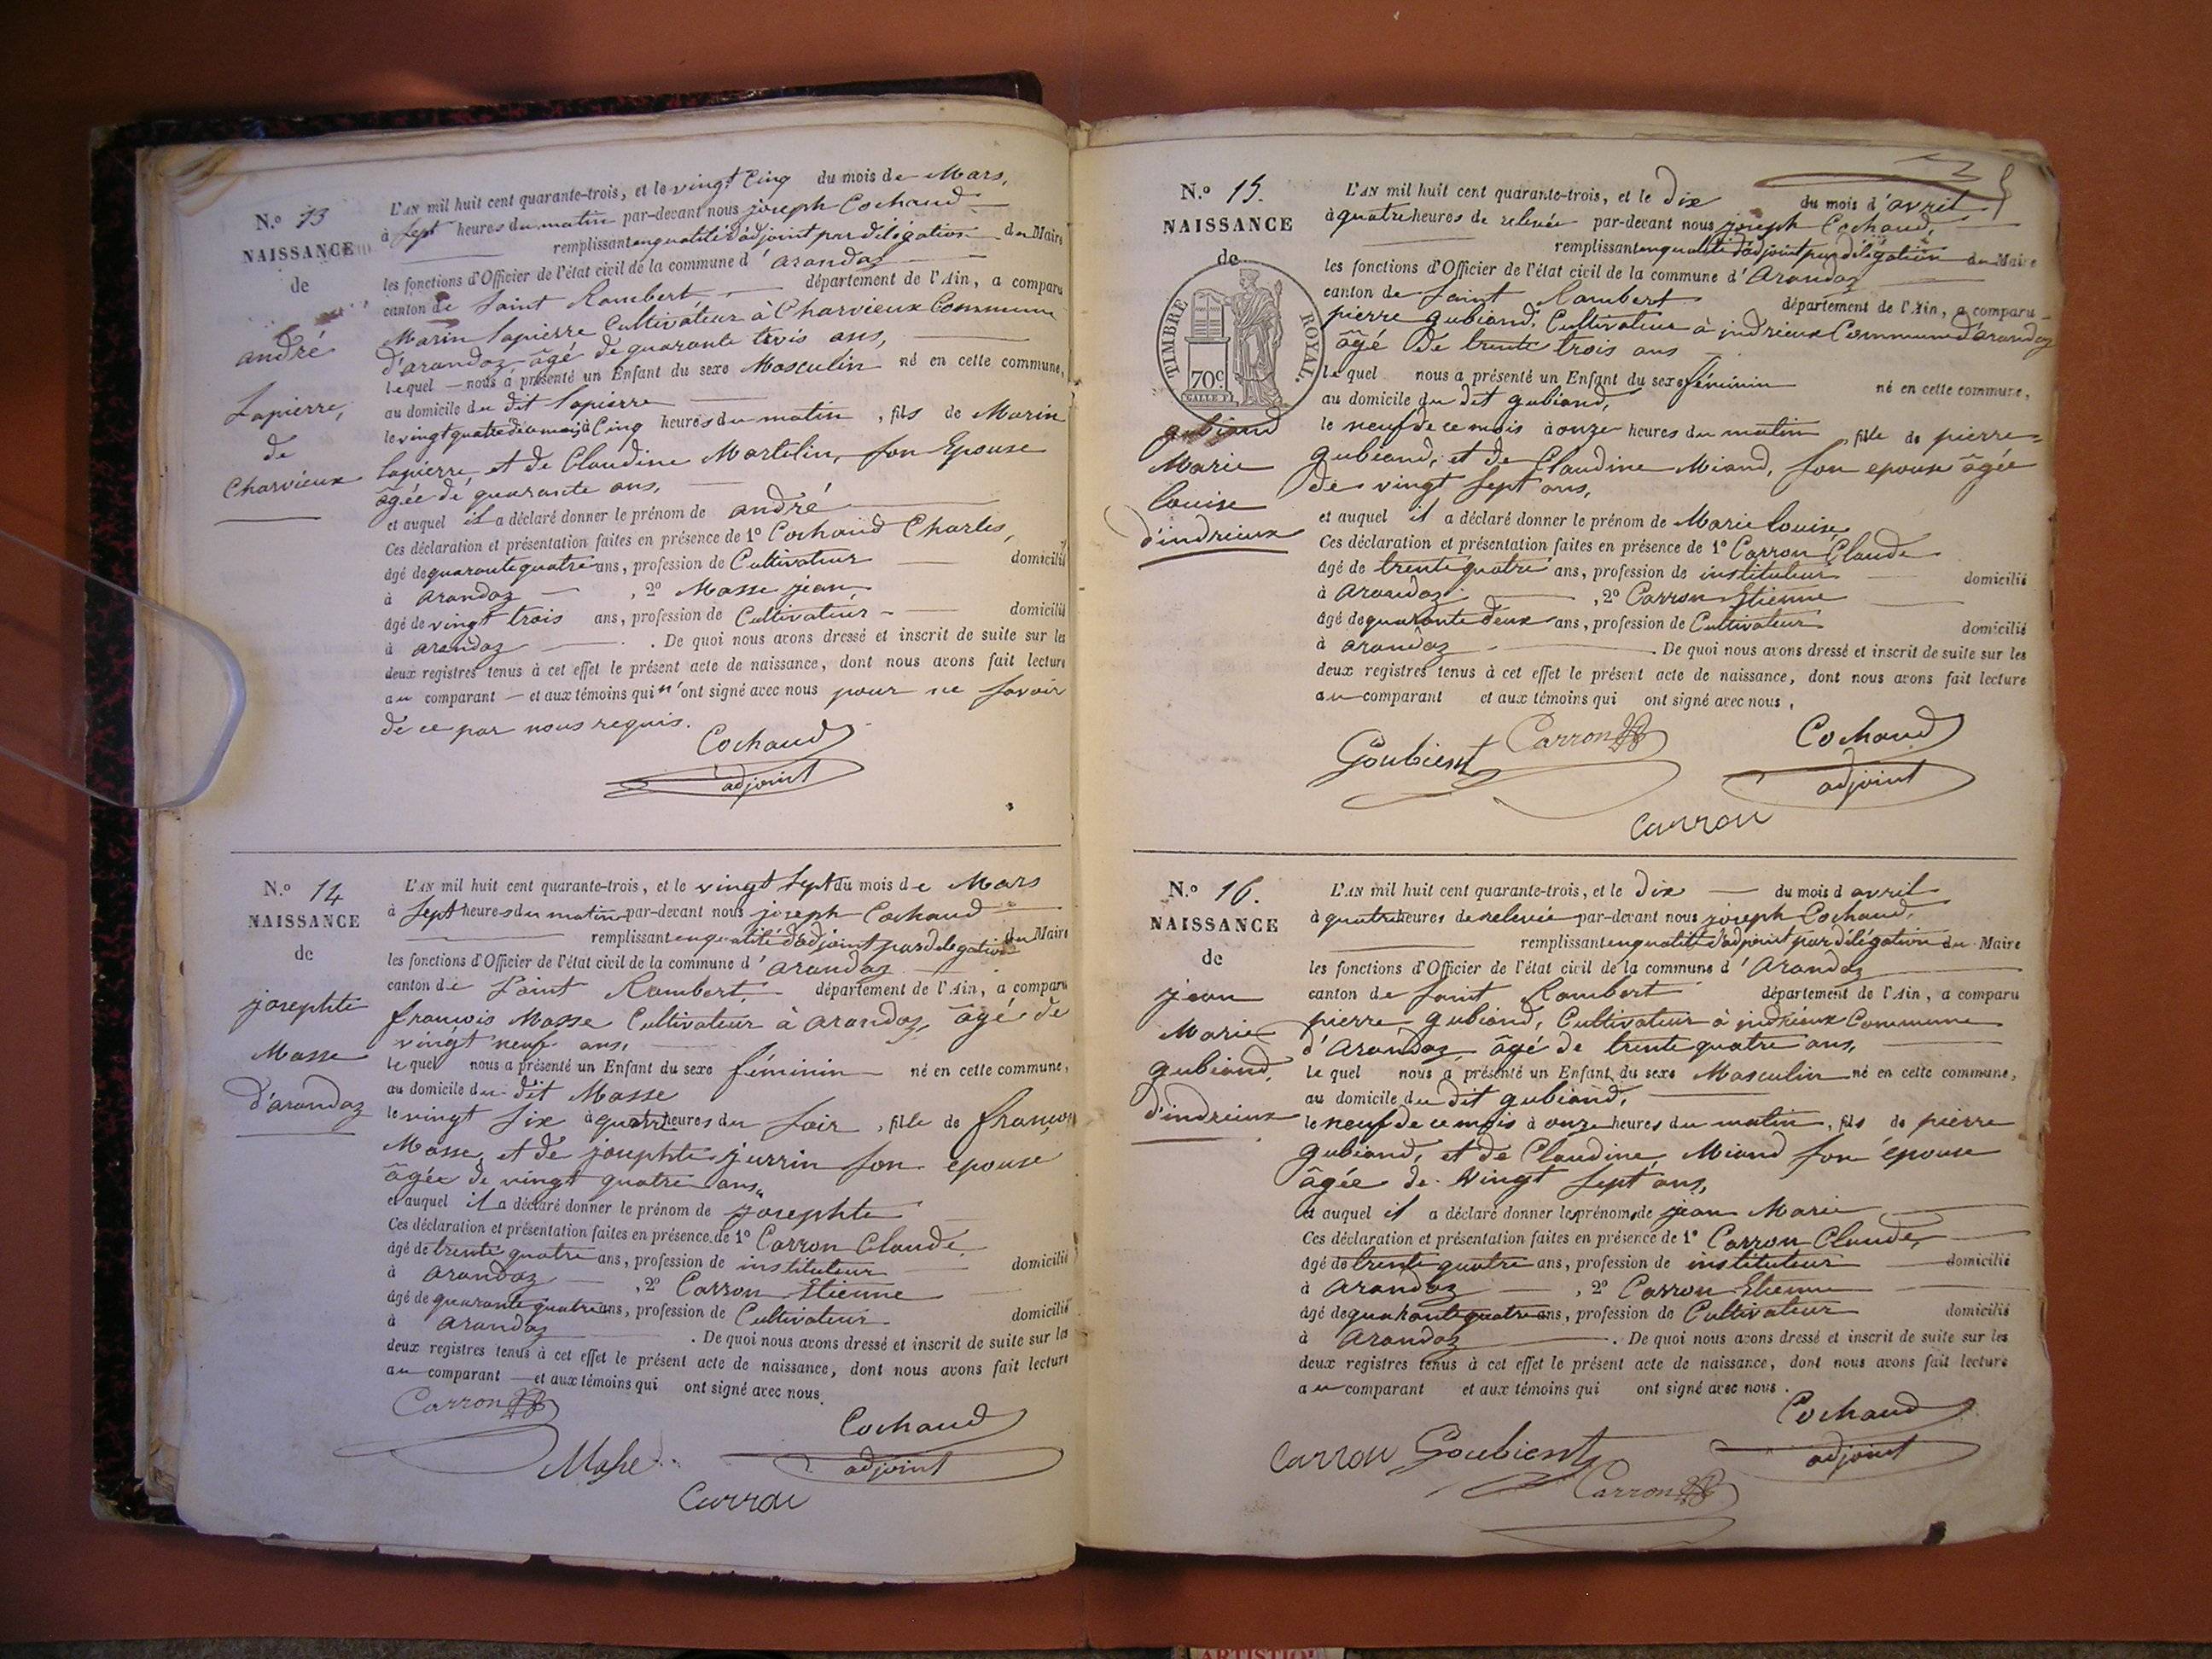 N.o 13
NAISSANCE
de
andré
Lapierre,
de
Charvieux
L'AN mil huit cent quarante-trois, et le vingt Cinq du mois de Mars,
à Sept heures du matin par-devant nous joseph Cochaud
remplissant en qualité d'adjoint par délégation du Maire
les fonctions d'Officier de l'état civil de la commune d'arandaz
canton de Saint Rambert, département de l'Ain, a comparu
Marin Lapierre Cultivateur à Charvieux Commune
d'arandaz âgé de quarante trois ans,
lequel nous a présenté un Enfant du sexe Masculin né en cette commune,
au domicile du dit Lapierre
le vingt quatre de ce mois, à Cinq heures du matin, fils de Marin
Lapierre et de Claudine Martelin, son Epouse
âgée de quarante ans,
et auquel il a déclaré donner le prénom de andré
Ces déclaration et présentation faites en présence de 1o Cochaud Charles,
âgé de quarante quatre ans, profession de Cultivateur domicilié
à arandaz, 2o Masse jean,
âgé de vingt trois ans, profession de Cultivateur domicilié
à arandaz. De quoi nous avons dressé et inscrit de suite sur les
deux registres tenus à cet effet le présent acte de naissance, dont nous avons fait lecture
au comparant et aux témoins qui n'ont signé avec nous pour ne savoir
de ce par nous requis.
Cochaud
adjoint
N.o 14
NAISSANCE
de
josephte
Masse
d'arandaz
L'AN mil huit cent quarante-trois, et le vingt Sept du mois de Mars
à Sept heures du matin par-devant nous joseph Cochaud
remplissant en qualité d'adjoint par délégation du Maire
les fonctions d'Officier de l'état civil de la commune d'arandaz
canton de Saint Rambert, département de l'Ain, a comparu
françois Masse Cultivateur à arandaz, âgé de
vingt neuf ans,
lequel nous a présenté un Enfant du sexe féminin né en cette commune,
au domicile du dit Masse
le vingt Six à quatre heures du Soir, fille de françois
Masse, et de josephte jurrin son epouse
âgée de vingt quatre ans,
et auquel il a déclaré donner le prénom de josephte
Ces déclaration et présentation faites en présence de 1o Carron Claude
âgé de trente quatre ans, profession de instituteur domicilié
à arandaz, 2o Carron Etienne
âgé de quarante quatre ans, profession de Cultivateur domicilié
à arandaz. De quoi nous avons dressé et inscrit de suite sur les
deux registres tenus à cet effet le présent acte de naissance, dont nous avons fait lecture
au comparant et aux témoins qui ont signé avec nous.
Carron
Cochaud
Masse
adjoint
Carron
N.o 15.
NAISSANCE
de
TIMBRE ROYAL.
70c.
gubiand
Marie
Louise
d'indrieux
L'AN mil huit cent quarante-trois, et le Dix du mois d'avril
à quatre heures de relevée par-devant nous joseph Cochaud,
remplissant en qualité d'adjoint par délégation du Maire
les fonctions d'Officier de l'état civil de la commune d'Arandaz
canton de Saint Rambert département de l'Ain, a comparu
pierre gubiand, Cultivateur à indrieux Commune d'arandaz
âgé de trente trois ans
lequel nous a présenté un Enfant du sexe féminin né en cette commune,
au domicile du dit gubiand,
le neuf de ce mois à onze heures du matin fille de pierre
gubiand, et de Claudine Miand, son epouse âgée
de vingt Sept ans,
et auquel il a déclaré donner le prénom de Marie Louise,
Ces déclaration et présentation faites en présence de 1o Carron Claude
âgé de trente quatre ans, profession de instituteur domicilié
à Arandaz, 2o Carron Etienne
âgé de quarante deux ans, profession de Cultivateur domicilié
à arandaz. De quoi nous avons dressé et inscrit de suite sur les
deux registres tenus à cet effet le présent acte de naissance, dont nous avons fait lecture
au comparant et aux témoins qui ont signé avec nous,
Goubient Carron Cochaud
adjoint
Carron
N.o 16.
NAISSANCE
de
jean
Marie
gubiand,
d'indrieux
L'AN mil huit cent quarante-trois, et le Dix du mois d avril
à quatre heures de relevée par-devant nous joseph Cochaud,
remplissant en qualité d'adjoint par délégation du Maire
les fonctions d'Officier de l'état civil de la commune d'Arandaz
canton de Saint Rambert département de l'Ain, a comparu
pierre gubiand, Cultivateur à indrieux Commune
d'Arandaz âgé de trente quatre ans,
lequel nous a présenté un Enfant du sexe Masculin né en cette commune,
au domicile du dit gubiand,
le neuf de ce mois à onze heures du matin, fils de pierre
gubiand, et de Claudine Miand son épouse
âgée de Vingt Sept ans,
et auquel il a déclaré donner les prénoms de jean Marie
Ces déclaration et présentation faites en présence de 1o Carron Claude,
âgé de trente quatre ans, profession de instituteur domicilié
à Arandaz, 2o Carron Etienne
âgé de quarante quatre ans, profession de Cultivateur domicilié
à Arandaz. De quoi nous avons dressé et inscrit de suite sur les
deux registres tenus à cet effet le présent acte de naissance, dont nous avons fait lecture
au comparant et aux témoins qui ont signé avec nous.
Cochaud
Carron Goubient adjoint
Carron